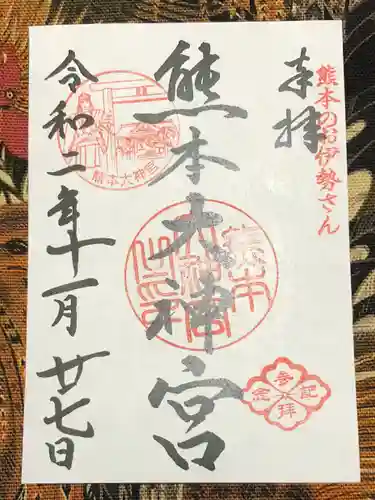 熊本のお伊勢さん
奉拝
熊本大神宮
熊本大神宮
参拝記念
令和二年十一月廿七日